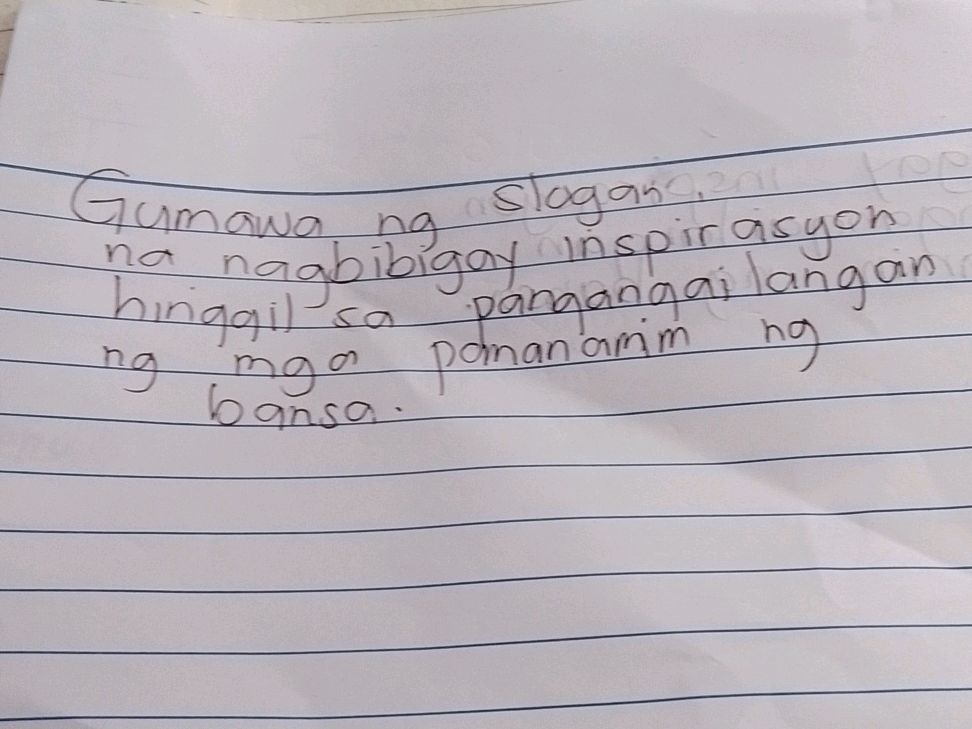 Gumawa ng slogan
na nagbibigay inspirasyon
hinggil sa pangangailangan
ng mga pamanamim ng
bansa.